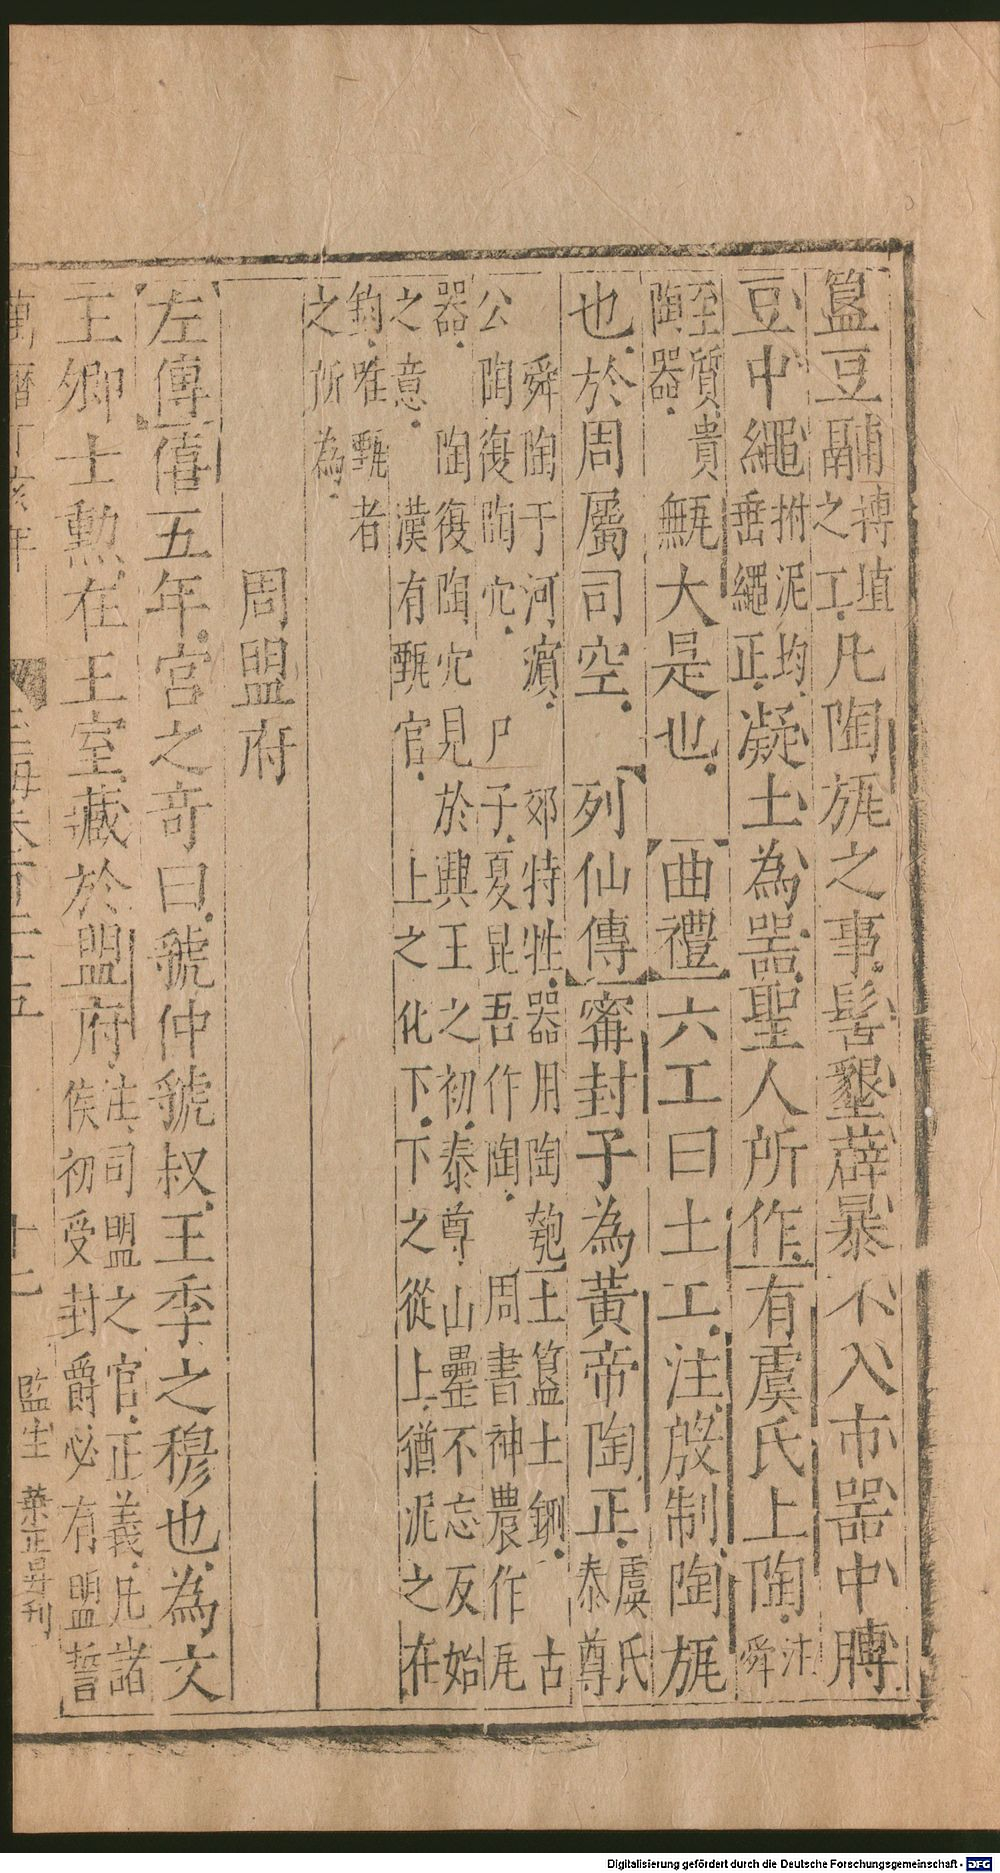 簋豆鬴搏埴之工凡陶旊之事髻墾薜暴不入市器中膞
豆中繩柎泥均垂繩正凝土為器聖人所作有虞氏上陶注舜
至質貴陶器甒大是也曲禮六工曰土工注殷制陶旊
也於周屬司空列仙傳甯封子為黃帝陶正虞氏泰尊
舜陶于河濱郊特牲器用陶匏土簋土鉶古
公陶復陶穴尸子夏昆吾作陶周書神農作瓦
器陶復陶穴見於興王之初泰尊山罍不忘反始
之意漢有甄官上之化下下之從上猶泥之在
鈞唯甄者
之所為
周盟府
左傳僖五年宮之奇曰虢仲虢叔王季之穆也為文
王卿士勳在王室藏於盟府注司盟之官正義凡諸
侯初受封爵必有盟誓
萬曆丁亥年
監生 葉正昇刊
Digitalisierung gefördert durch die Deutsche Forschungsgemeinschaft - DFG